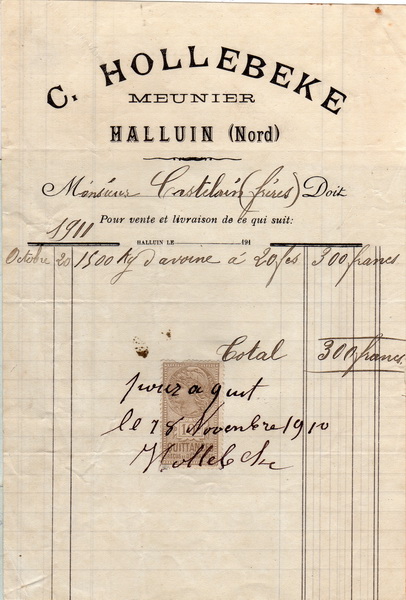 C. HOLLEBEKE
MEUNIER
HALLUIN (Nord)
Monsieur Castelain (frères) Doit
Pour vente et livraison de ce qui suit:
1911 HALLUIN LE 191
Octobre 20 1500 Kg d'avoine à 20 fcs 300 francs
Total 300 francs
pour aquit
le 18 Novembre 1910
QUITTANCES
Hollebeke